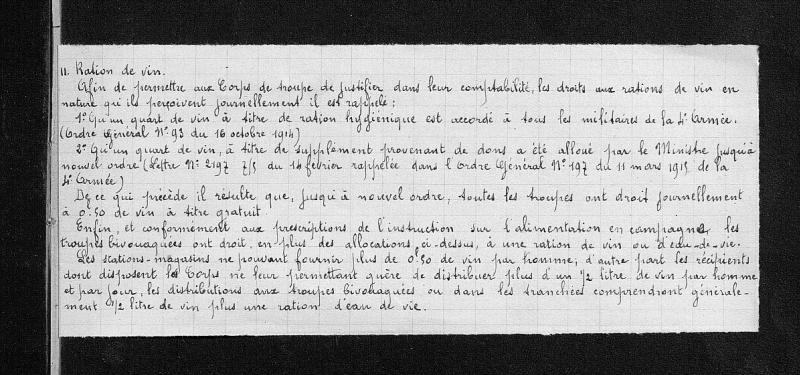 11. Ration de vin.
Afin de permettre aux Corps de troupe de justifier dans leur comptabilité, les droits aux rations de vin en
nature qu'ils perçoivent journellement il est rappelé :
1º Qu'un quart de vin à titre de ration hygiénique est accordé à tous les militaires de la 4e Armée.
(Ordre Général Nº 93 du 16 octobre 1914)
2º Qu'un quart de vin, à titre de supplément provenant de dons a été alloué par le Ministre jusqu'à
nouvel ordre (Lettre Nº 2197 7/5 du 14 février rappelée dans l'Ordre Général Nº 197 du 11 mars 1915 de la
4e Armée)
De ce qui précède il résulte que, jusqu'à nouvel ordre, toutes les troupes ont droit journellement
à 0l50 de vin à titre gratuit.
Enfin, et conformément aux prescriptions de l'instruction sur l'alimentation en campagne les
troupes bivouaquées ont droit, en plus des allocations ci-dessus, à une ration de vin ou d'eau-de-vie.
Les stations-magasins ne pouvant fournir plus de 0l50 de vin par homme, d'autre part les récipients
dont disposent les Corps ne leur permettant guère de distribuer plus d'un 1/2 litre de vin par homme
et par jour, les distributions aux troupes bivouaquées ou dans les tranchées comprendront générale-
ment 1/2 litre de vin plus une ration d'eau de vie.